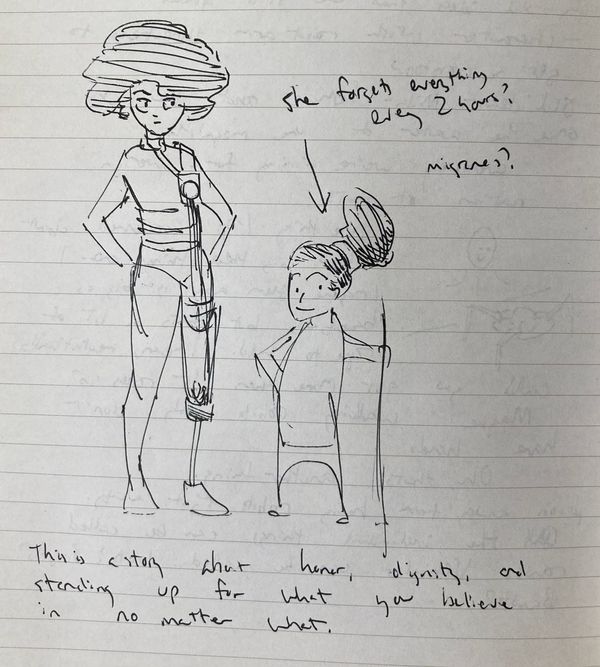 she forgets everything
every 2 hours?
migranes?
This is a story about honor, dignity, and
standing up for what you believe
in no matter what.